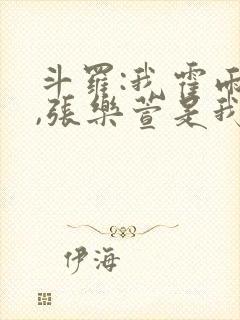 斗羅:我霍雨
,張樂萱是我
伊海